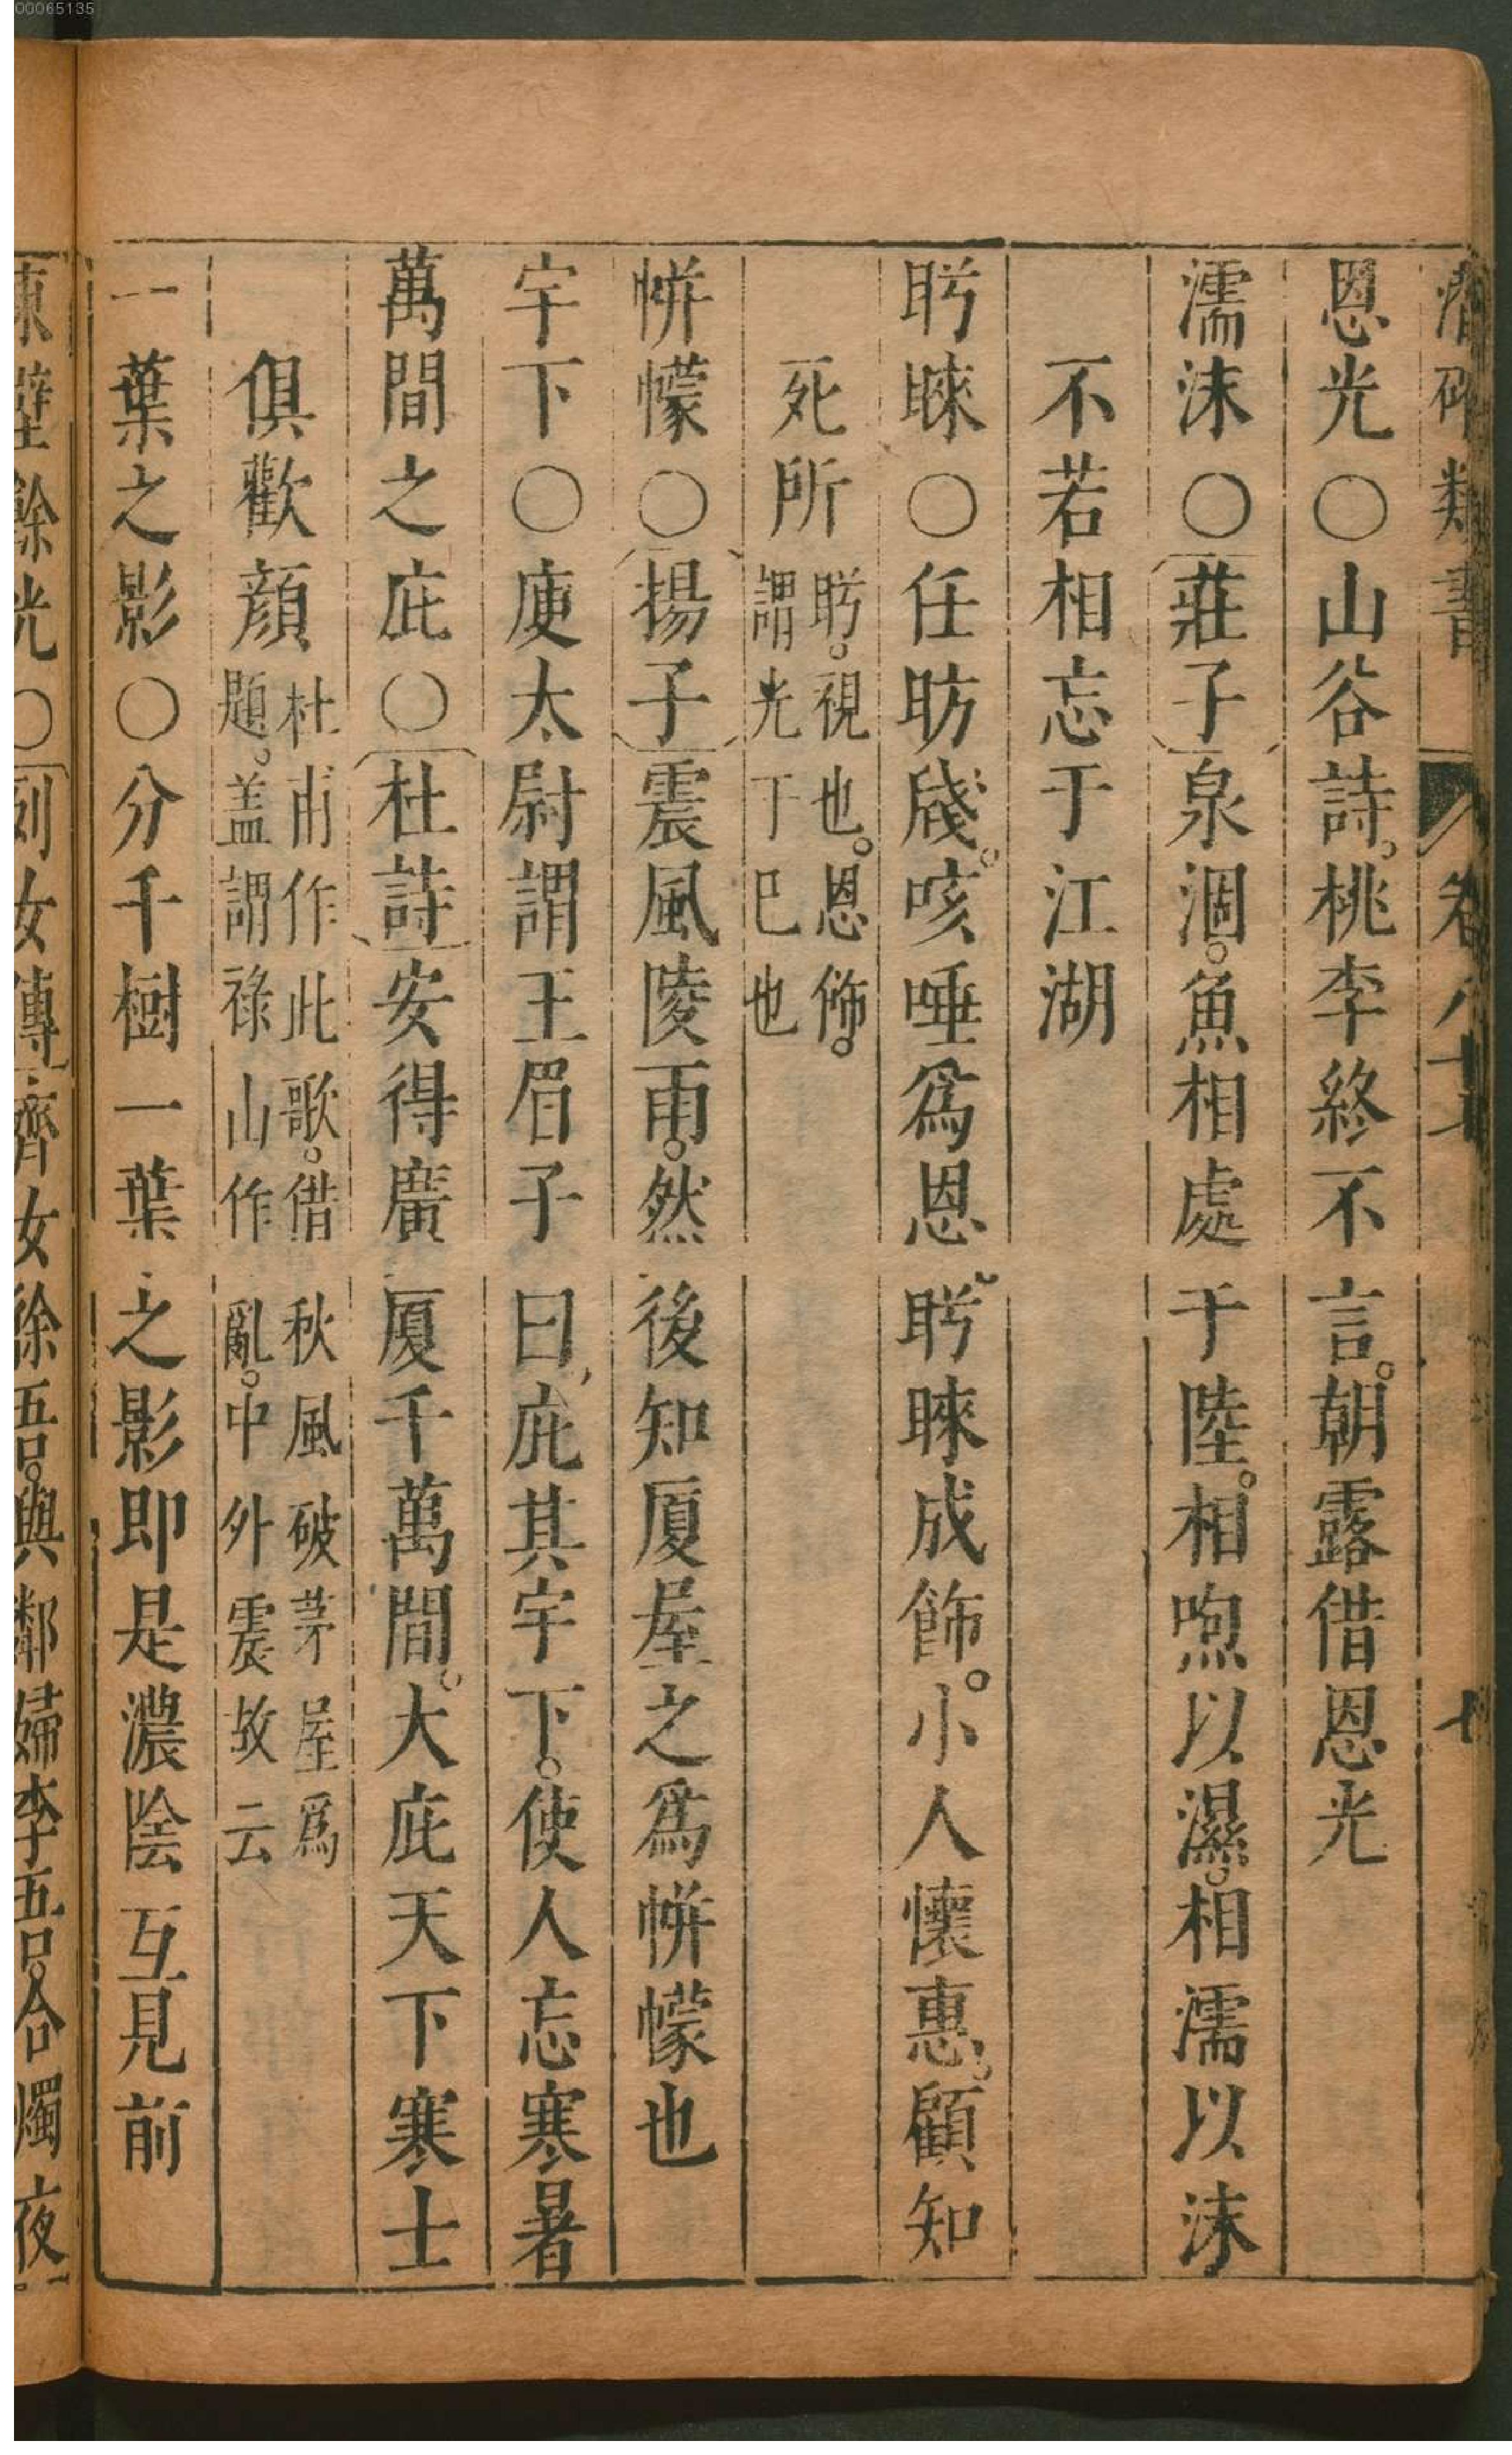 00065135
類書 卷八十七 七
恩光○山谷詩。桃李終不言。朝露借恩光
濡沫○莊子泉涸。魚相處于陸。相喣以濕。相濡以沫
不若相忘于江湖
眄睞○任昉牋。咳唾爲恩眄睞成飾。小人懷惠。顧知
死所眄。視也。恩飾。
謂光于巳也
帡幪○揚子震風陵雨。然後知厦屋之爲帡幪也
宇下○庾太尉謂王眉子曰庇其宇下。使人忘寒暑
萬間之庇○杜詩安得廣厦千萬間。大庇天下寒士
俱歡顔杜甫作此歌。借秋風破茅屋爲
題。盖謂祿山作亂。中外震故云
一葉之影○分千樹一葉之影即是濃陰互見前
東壁餘光○列女傳齊女徐吾。與鄰婦李吾。合燭夜